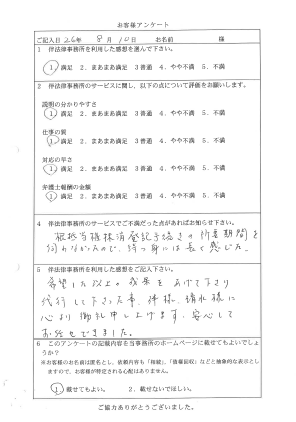 お客様アンケート
ご記入日 26年 8月 10日 お名前 様
1 伴法律事務所を利用した感想を選んで下さい。
1.満足 2.まあまあ満足 3普通 4.やや不満 5.不満
2 伴法律事務所のサービスに関し、以下の点について評価をお願いします。
説明の分かりやすさ
1.満足 2.まあまあ満足 3普通 4.やや不満 5.不満
仕事の質
1.満足 2.まあまあ満足 3普通 4.やや不満 5.不満
対応の早さ
1.満足 2.まあまあ満足 3普通 4.やや不満 5.不満
弁護士報酬の金額
1.満足 2.まあまあ満足 3普通 4.やや不満 5.不満
4 伴法律事務所のサービスでご不満だった点があればお知らせ下さい。
根抵当権抹消登記手続きの所要期間を
伺わなかったので、待つ身には長く感じた。
5 伴法律事務所を利用した感想をご記入下さい。
希望した以上の成果をあげて下さり
代行して下さった事、伴様、晴れ様に
心より御礼申し上げます。安心して
お任せできました。
6 このアンケートの記載内容を当事務所のホームページに載せてもよいでしょうか?
※お客様のお名前は匿名とし、依頼内容も「相続」、「債権回収」などと抽象的な表示としますので、お客様が特定される心配はありません。
1.載せてもよい。 2.載せないでほしい。
ご協力ありがとうございました。